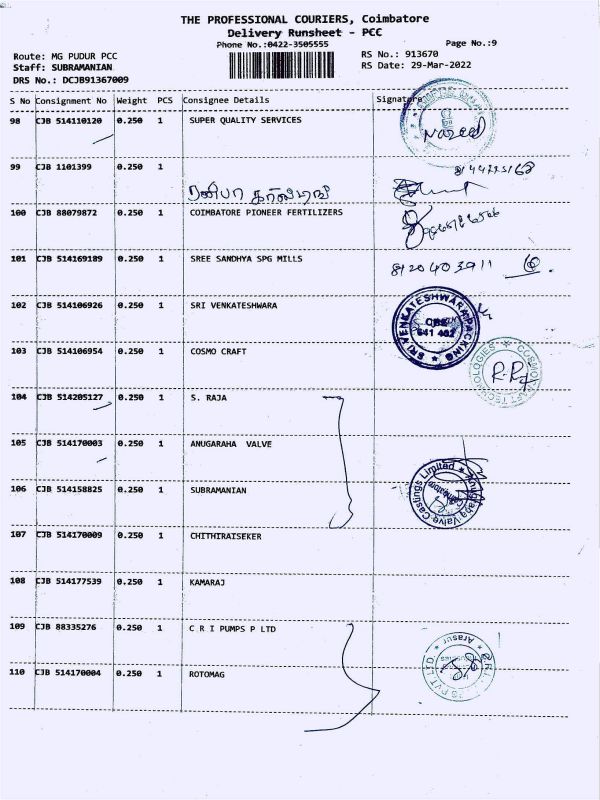 THE PROFESSIONAL COURIERS, Coimbatore
Delivery Runsheet - PCC
Phone No.:0422-3505555
Page No.:9
Route: MG PUDUR PCC
RS No.: 913670
Staff: SUBRAMANIAN
RS Date: 29-Mar-2022
DRS No.: DCJB91367009
S No Consignment No Weight PCS Consignee Details Signature
98 CJB 514110120 0.250 1 SUPER QUALITY SERVICES
99 CJB 1101399 0.250 1
100 CJB 88079872 0.250 1 COIMBATORE PIONEER FERTILIZERS
101 CJB 514169189 0.250 1 SREE SANDHYA SPG MILLS
8120403911
102 CJB 514106926 0.250 1 SRI VENKATESHWARA
SRI VENKATESHWARA PACKING
CBE
641 402
103 CJB 514106954 0.250 1 COSMO CRAFT
COSMOCRAFT TECHNOLOGIES
104 CJB 514205127 0.250 1 S. RAJA
105 CJB 514170003 0.250 1 ANUGARAHA VALVE
106 CJB 514158825 0.250 1 SUBRAMANIAN
Anugraha Valve Castings Limited
Coimbatore
107 CJB 514170009 0.250 1 CHITHIRAISEKER
108 CJB 514177539 0.250 1 KAMARAJ
109 CJB 88335276 0.250 1 C R I PUMPS P LTD
Arasur
110 CJB 514170004 0.250 1 ROTOMAG